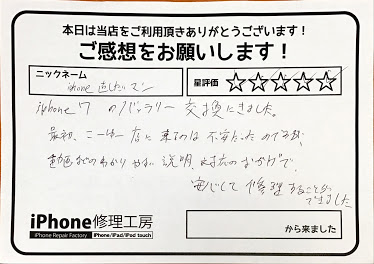 本日は当店をご利用頂きありがとうございます！
ご感想をお願いします！
ニックネーム
iphone 直したいマン
星評価 ☆☆☆☆☆
iphone 7 のバッテリー交換にきました。
最初、こーゆー店に来るのは不安だったのですが、
動画などのわかりやすい説明、対応のおかげで、
安心して修理することが
できました
iPhone修理工房
iPhone Repair Factory iPhone/iPad/iPod touch
から来ました